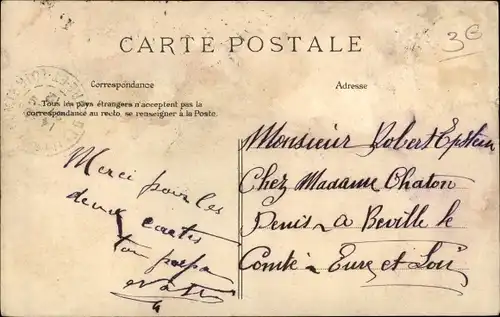 3€
CARTE POSTALE
Correspondance
Adresse
Tous les pays étrangers n'acceptent pas la
correspondance au recto, se renseigner à la Poste.
Merci pour les
deux cartes
ton
Monsieur Robert Epstein
Chez Madame Chaton
Denis - a Beville le
Comte - Eure et Loir